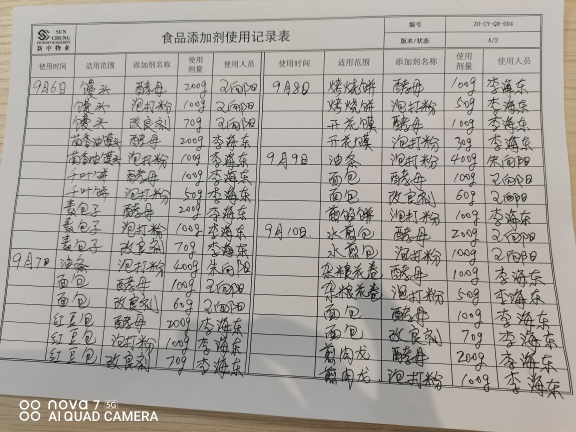 SUN CHUNG
新中物业
食品添加剂使用记录表
编号 ZH-CY-QR-004
版本/状态 A/2
使用时间 适用范围 添加剂名称 使用剂量 使用人员 使用时间 适用范围 添加剂名称 使用剂量 使用人员
9月6日 馒头 酵母 200g 王向阳 9月8日 烤烧饼 酵母 100g 李海东
馒头 泡打粉 100g 王向阳 烤烧饼 泡打粉 50g 李海东
馒头 改良剂 70g 王向阳 开花馍 酵母 100g 李海东
酵母 200g 李海东 开花馍 泡打粉 30g 李海东
泡打粉 100g 李海东 9月9日 油条 泡打粉 400g 朱向阳
千叶饼 酵母 100g 李海东 面包 酵母 100g 王向阳
千叶饼 泡打粉 50g 李海东 面包 改良剂 60g 王向阳
素包子 酵母 200g 李海东 泡打粉 100g 李海东
素包子 泡打粉 100g 李海东 9月10日 水煎包 酵母 200g 王向阳
素包子 改良剂 70g 李海东 水煎包 泡打粉 100g 王向阳
9月7日 油条 泡打粉 400g 朱向阳 杂粮花卷 酵母 100g 李海东
面包 酵母 100g 王向阳 杂粮花卷 泡打粉 50g 李海东
面包 改良剂 60g 王向阳 面包 酵母 100g 李海东
红豆包 酵母 200g 李海东 面包 改良剂 70g 李海东
红豆包 泡打粉 100g 李海东 肉龙 酵母 200g 李海东
红豆包 改良剂 70g 李海东 肉龙 泡打粉 100g 李海东
nova 7 5G
AI QUAD CAMERA